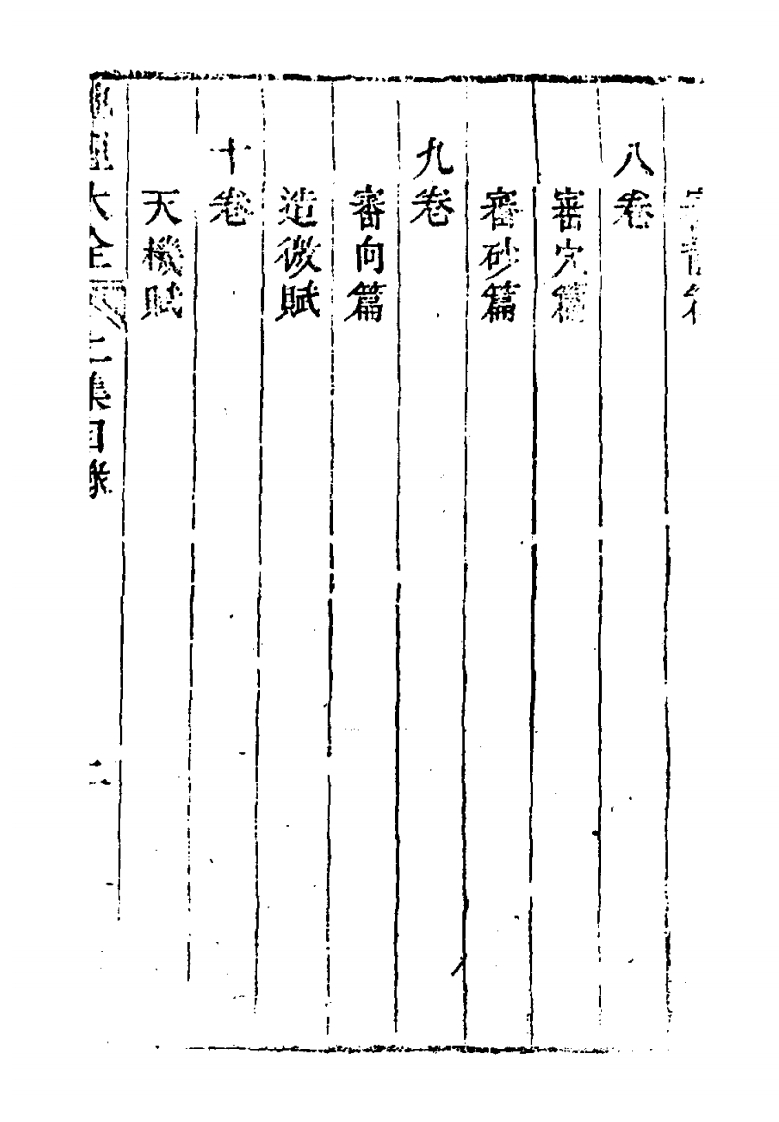 八卷
審穴篇
審砂篇
九卷
審向篇
造微賦
十卷
天機賦
地理大全 二集目錄 二